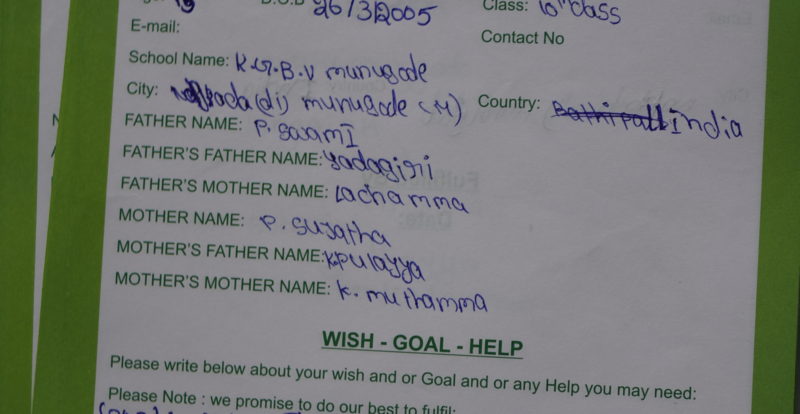 26/3/2005 Class: 10th class
E-mail: Contact No
School Name: K.G.B.V munugode
City: (di) munugode (M) Country: India
FATHER NAME: P. swamI
FATHER'S FATHER NAME: Yadagiri
FATHER'S MOTHER NAME: Lachamma
MOTHER NAME: P. sujatha
MOTHER'S FATHER NAME: K.Pulayya
MOTHER'S MOTHER NAME: K. muthamma
WISH - GOAL - HELP
Please write below about your wish and or Goal and or any Help you may need:
Please Note : we promise to do our best to fulfil: